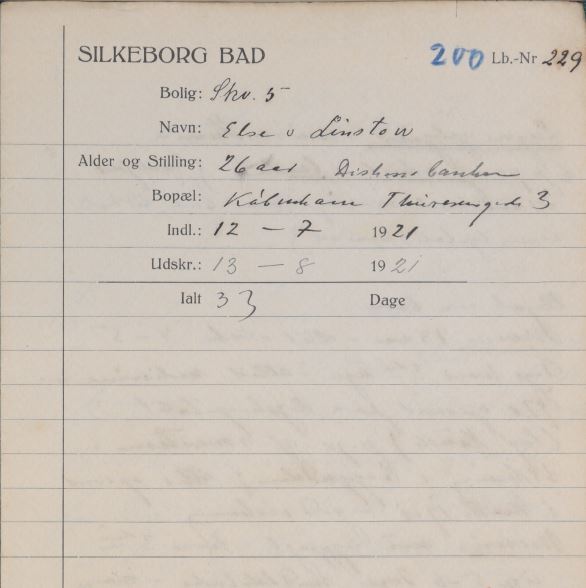 SILKEBORG BAD 200 Lb.-Nr 229
Bolig: Skv. 5
Navn: Else v Linstow
Alder og Stilling: 26 aar
Bopæl: København 3
Indl.: 12 - 7 1921
Udskr.: 13 - 8 1921
Ialt 33 Dage